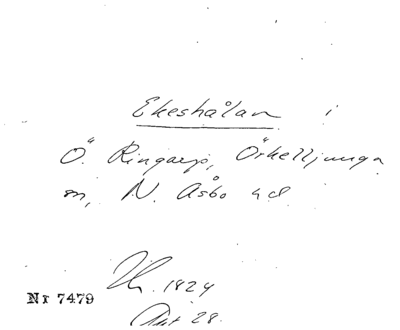 Ekeshålan i
Ö. Ringarp, Örkelljunga
m, N. Åsbo hd
1824
Nr 7479
Akt 28.